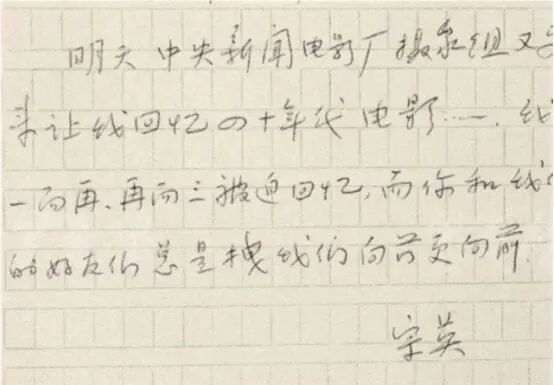 明天 中央新闻电影厂摄录组又
来让我回忆四十年代电影……. 我
一而再、再而三被迫回忆,而你和我
的好友们总是拽我们向前更向前.
宗英